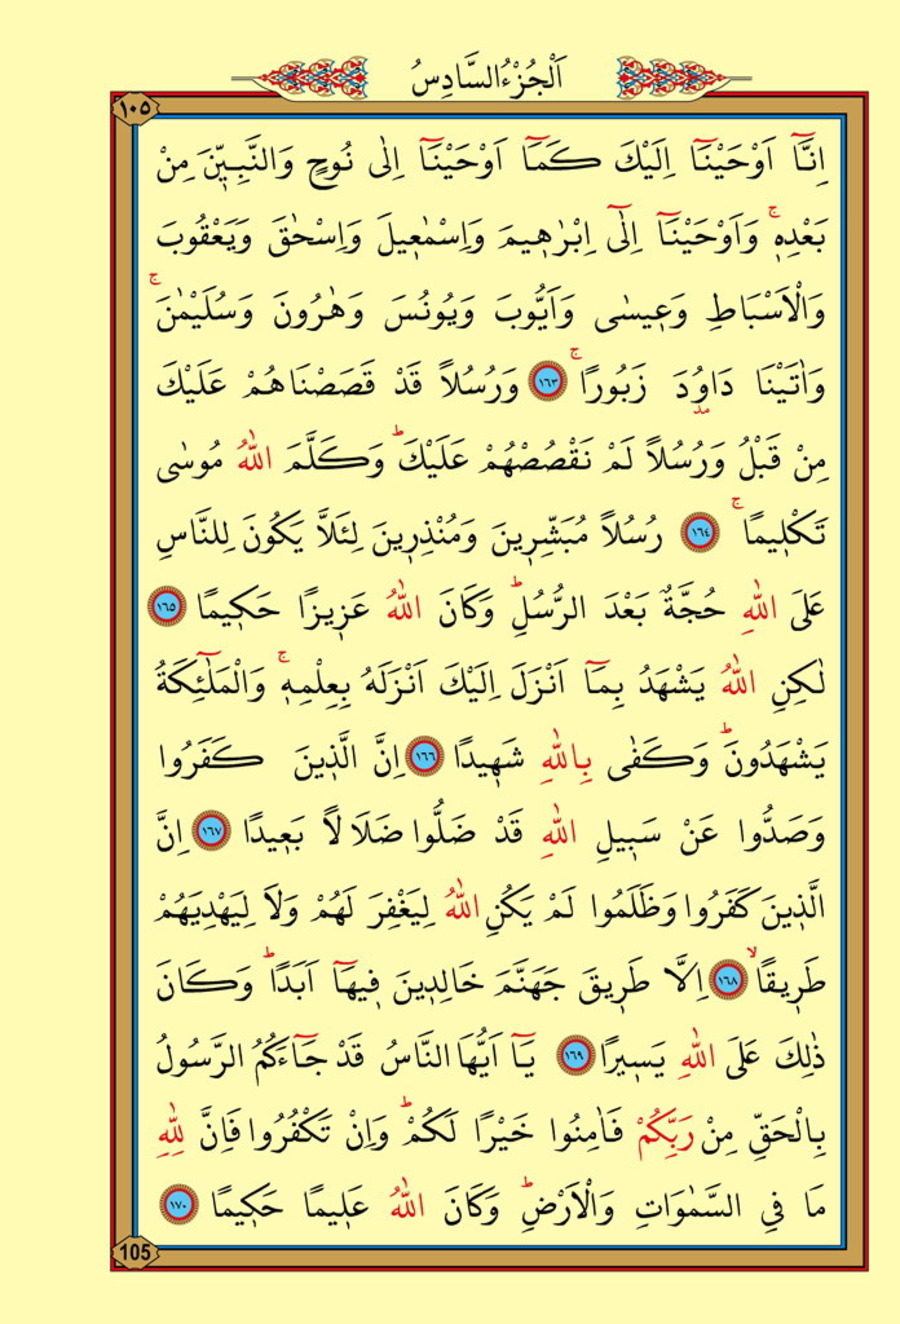 اَلْجُزْءُ السَّادِسُ
١٠٥
اِنَّٓا اَوْحَيْنَٓا اِلَيْكَ كَمَٓا اَوْحَيْنَٓا اِلٰى نُوحٍ وَالنَّبِيّٖنَ مِنْ
بَعْدِهٖۚ وَاَوْحَيْنَٓا اِلٰٓى اِبْرٰهٖيمَ وَاِسْمٰعٖيلَ وَاِسْحٰقَ وَيَعْقُوبَ
وَالْاَسْبَاطِ وَعٖيسٰى وَاَيُّوبَ وَيُونُسَ وَهٰرُونَ وَسُلَيْمٰنَۚ
وَاٰتَيْنَا دَاوُدَ زَبُورًاۚ ﴿١٦٣﴾ وَرُسُلاً قَدْ قَصَصْنَاهُمْ عَلَيْكَ
مِنْ قَبْلُ وَرُسُلاً لَمْ نَقْصُصْهُمْ عَلَيْكَؕ وَكَلَّمَ اللّٰهُ مُوسٰى
تَكْلٖيمًاۚ ﴿١٦٤﴾ رُسُلاً مُبَشِّرٖينَ وَمُنْذِرٖينَ لِئَلاَّ يَكُونَ لِلنَّاسِ
عَلَى اللّٰهِ حُجَّةٌ بَعْدَ الرُّسُلِؕ وَكَانَ اللّٰهُ عَزٖيزًا حَكٖيمًا ﴿١٦٥﴾
لٰكِنِ اللّٰهُ يَشْهَدُ بِمَٓا اَنْزَلَ اِلَيْكَ اَنْزَلَهُ بِعِلْمِهٖۚ وَالْمَلٰٓئِكَةُ
يَشْهَدُونَؕ وَكَفٰى بِاللّٰهِ شَهٖيدًا ﴿١٦٦﴾ اِنَّ الَّذٖينَ كَفَرُوا
وَصَدُّوا عَنْ سَبٖيلِ اللّٰهِ قَدْ ضَلُّوا ضَلَالاً بَعٖيدًا ﴿١٦٧﴾ اِنَّ
الَّذٖينَ كَفَرُوا وَظَلَمُوا لَمْ يَكُنِ اللّٰهُ لِيَغْفِرَ لَهُمْ وَلَا لِيَهْدِيَهُمْ
طَرٖيقًاۙ ﴿١٦٨﴾ اِلَّا طَرٖيقَ جَهَنَّمَ خَالِدٖينَ فٖيهَٓا اَبَدًاؕ وَكَانَ
ذٰلِكَ عَلَى اللّٰهِ يَسٖيرًا ﴿١٦٩﴾ يَٓا اَيُّهَا النَّاسُ قَدْ جَٓاءَكُمُ الرَّسُولُ
بِالْحَقِّ مِنْ رَبِّكُمْ فَاٰمِنُوا خَيْرًا لَكُمْؕ وَاِنْ تَكْفُرُوا فَاِنَّ لِلّٰهِ
مَا فِي السَّمٰوَاتِ وَالْاَرْضِؕ وَكَانَ اللّٰهُ عَلٖيمًا حَكٖيمًا ﴿١٧٠﴾
105